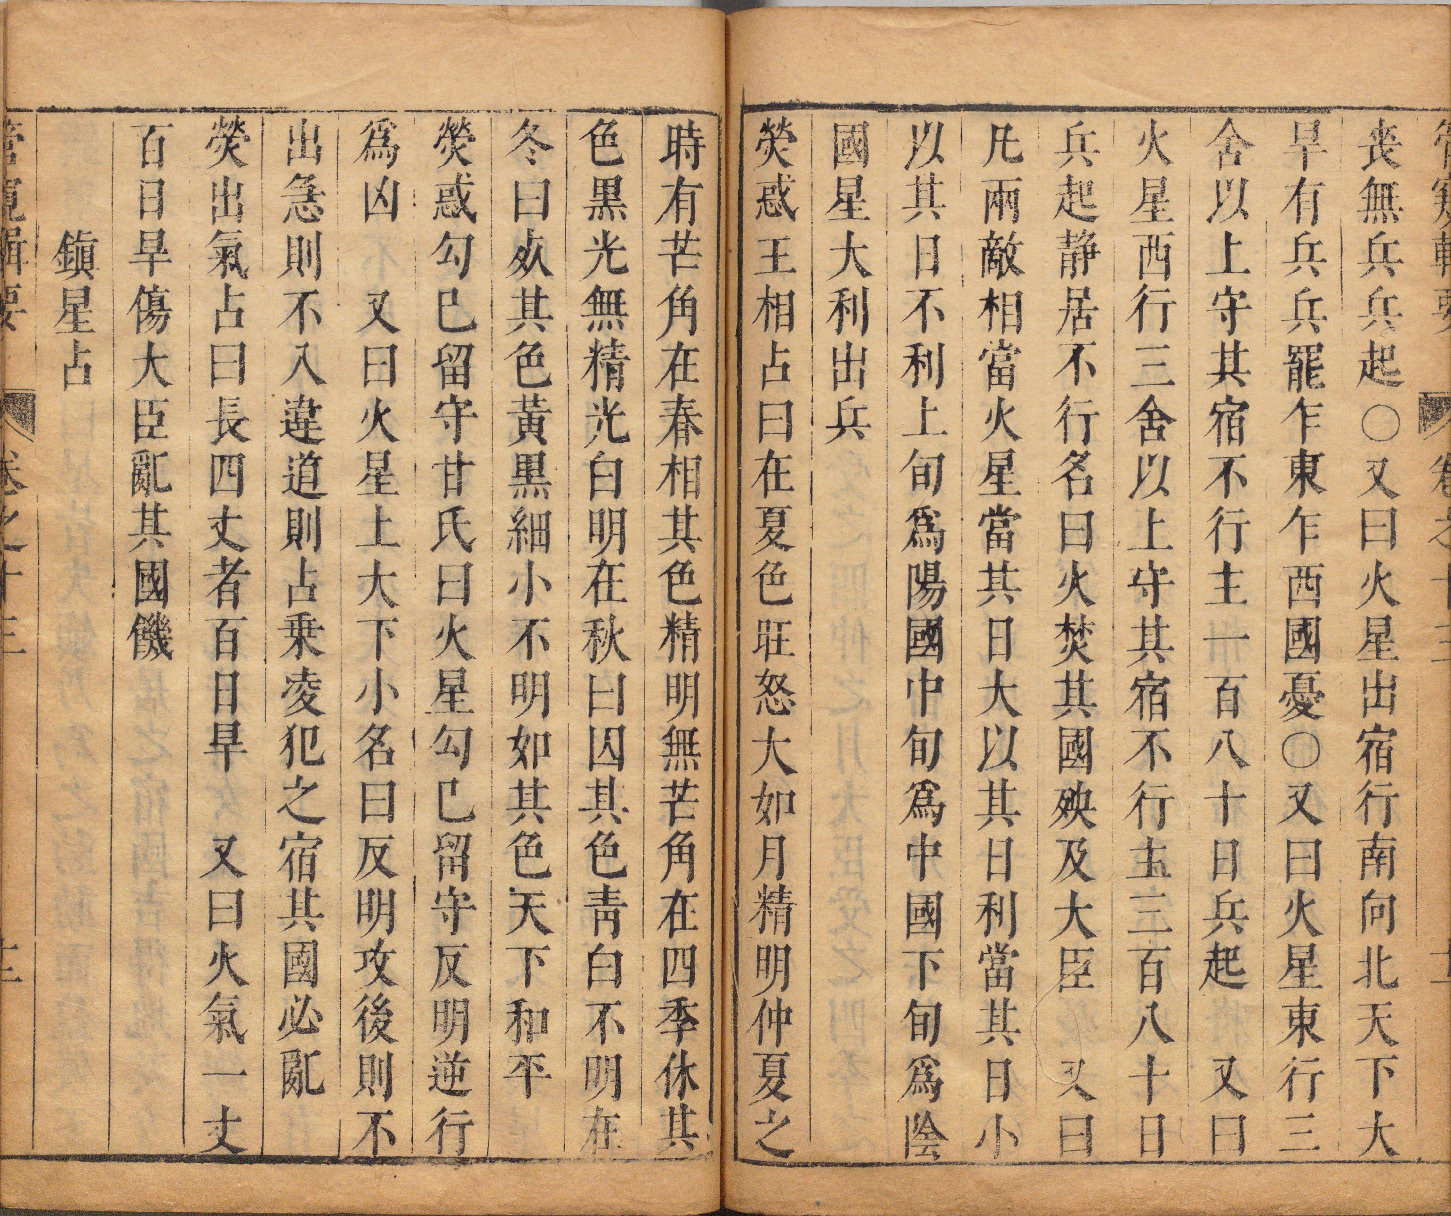 管窺輯要 卷之十三 十一
喪無兵兵起○又曰火星出宿行南向北天下大
旱有兵兵罷乍東乍西國憂○又曰火星東行三
舍以上守其宿不行主一百八十日兵起 又曰
火星西行三舍以上守其宿不行主三百八十日
兵起静居不行名曰火焚其國殃及大臣 又曰
凡兩敵相當火星當其日大以其日利當其日小
以其日不利上旬爲陽國中旬爲中國下旬爲陰
國星大利出兵
熒惑王相占曰在夏色旺怒大如月精明仲夏之
時有芒角在春相其色精明無芒角在四季休其
色黑光無精光白明在秋曰囚其色靑白不明在
冬曰㚣其色黃黒細小不明如其色天下和平
熒惑勾巳留守甘氏曰火星勾巳留守反明逆行
爲凶 又曰火星上大下小名曰反明攻後則不
出急則不入違道則占乗凌犯之宿其國必亂
熒出氣占曰長四丈者百日旱 又曰火氣一丈
百日旱傷大臣亂其國饑
鎭星占
管窺輯要 卷之十三 十二